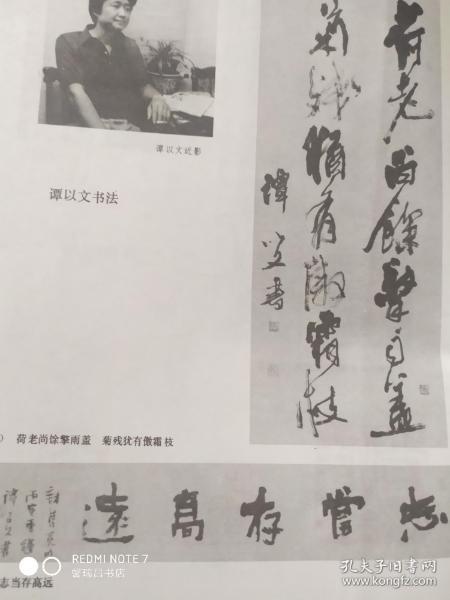 谭以文近影
谭以文书法
荷老尚馀擎雨盖
菊残犹有傲霜枝
谭以文书
荷老尚馀擎雨盖 菊残犹有傲霜枝
志當存高遠
志当存高远
REDMI NOTE 7
馨瑞吕书店
孔夫子旧书网